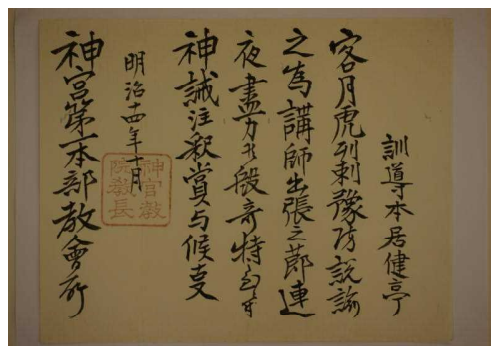 訓導本居健亭
客月虎列刺豫防説諭
之為講師出張之節連
夜盡力候段奇特
神誡注釈賞与候支
明治十四年十月
神宮教院教長
神宮第一本部教會所